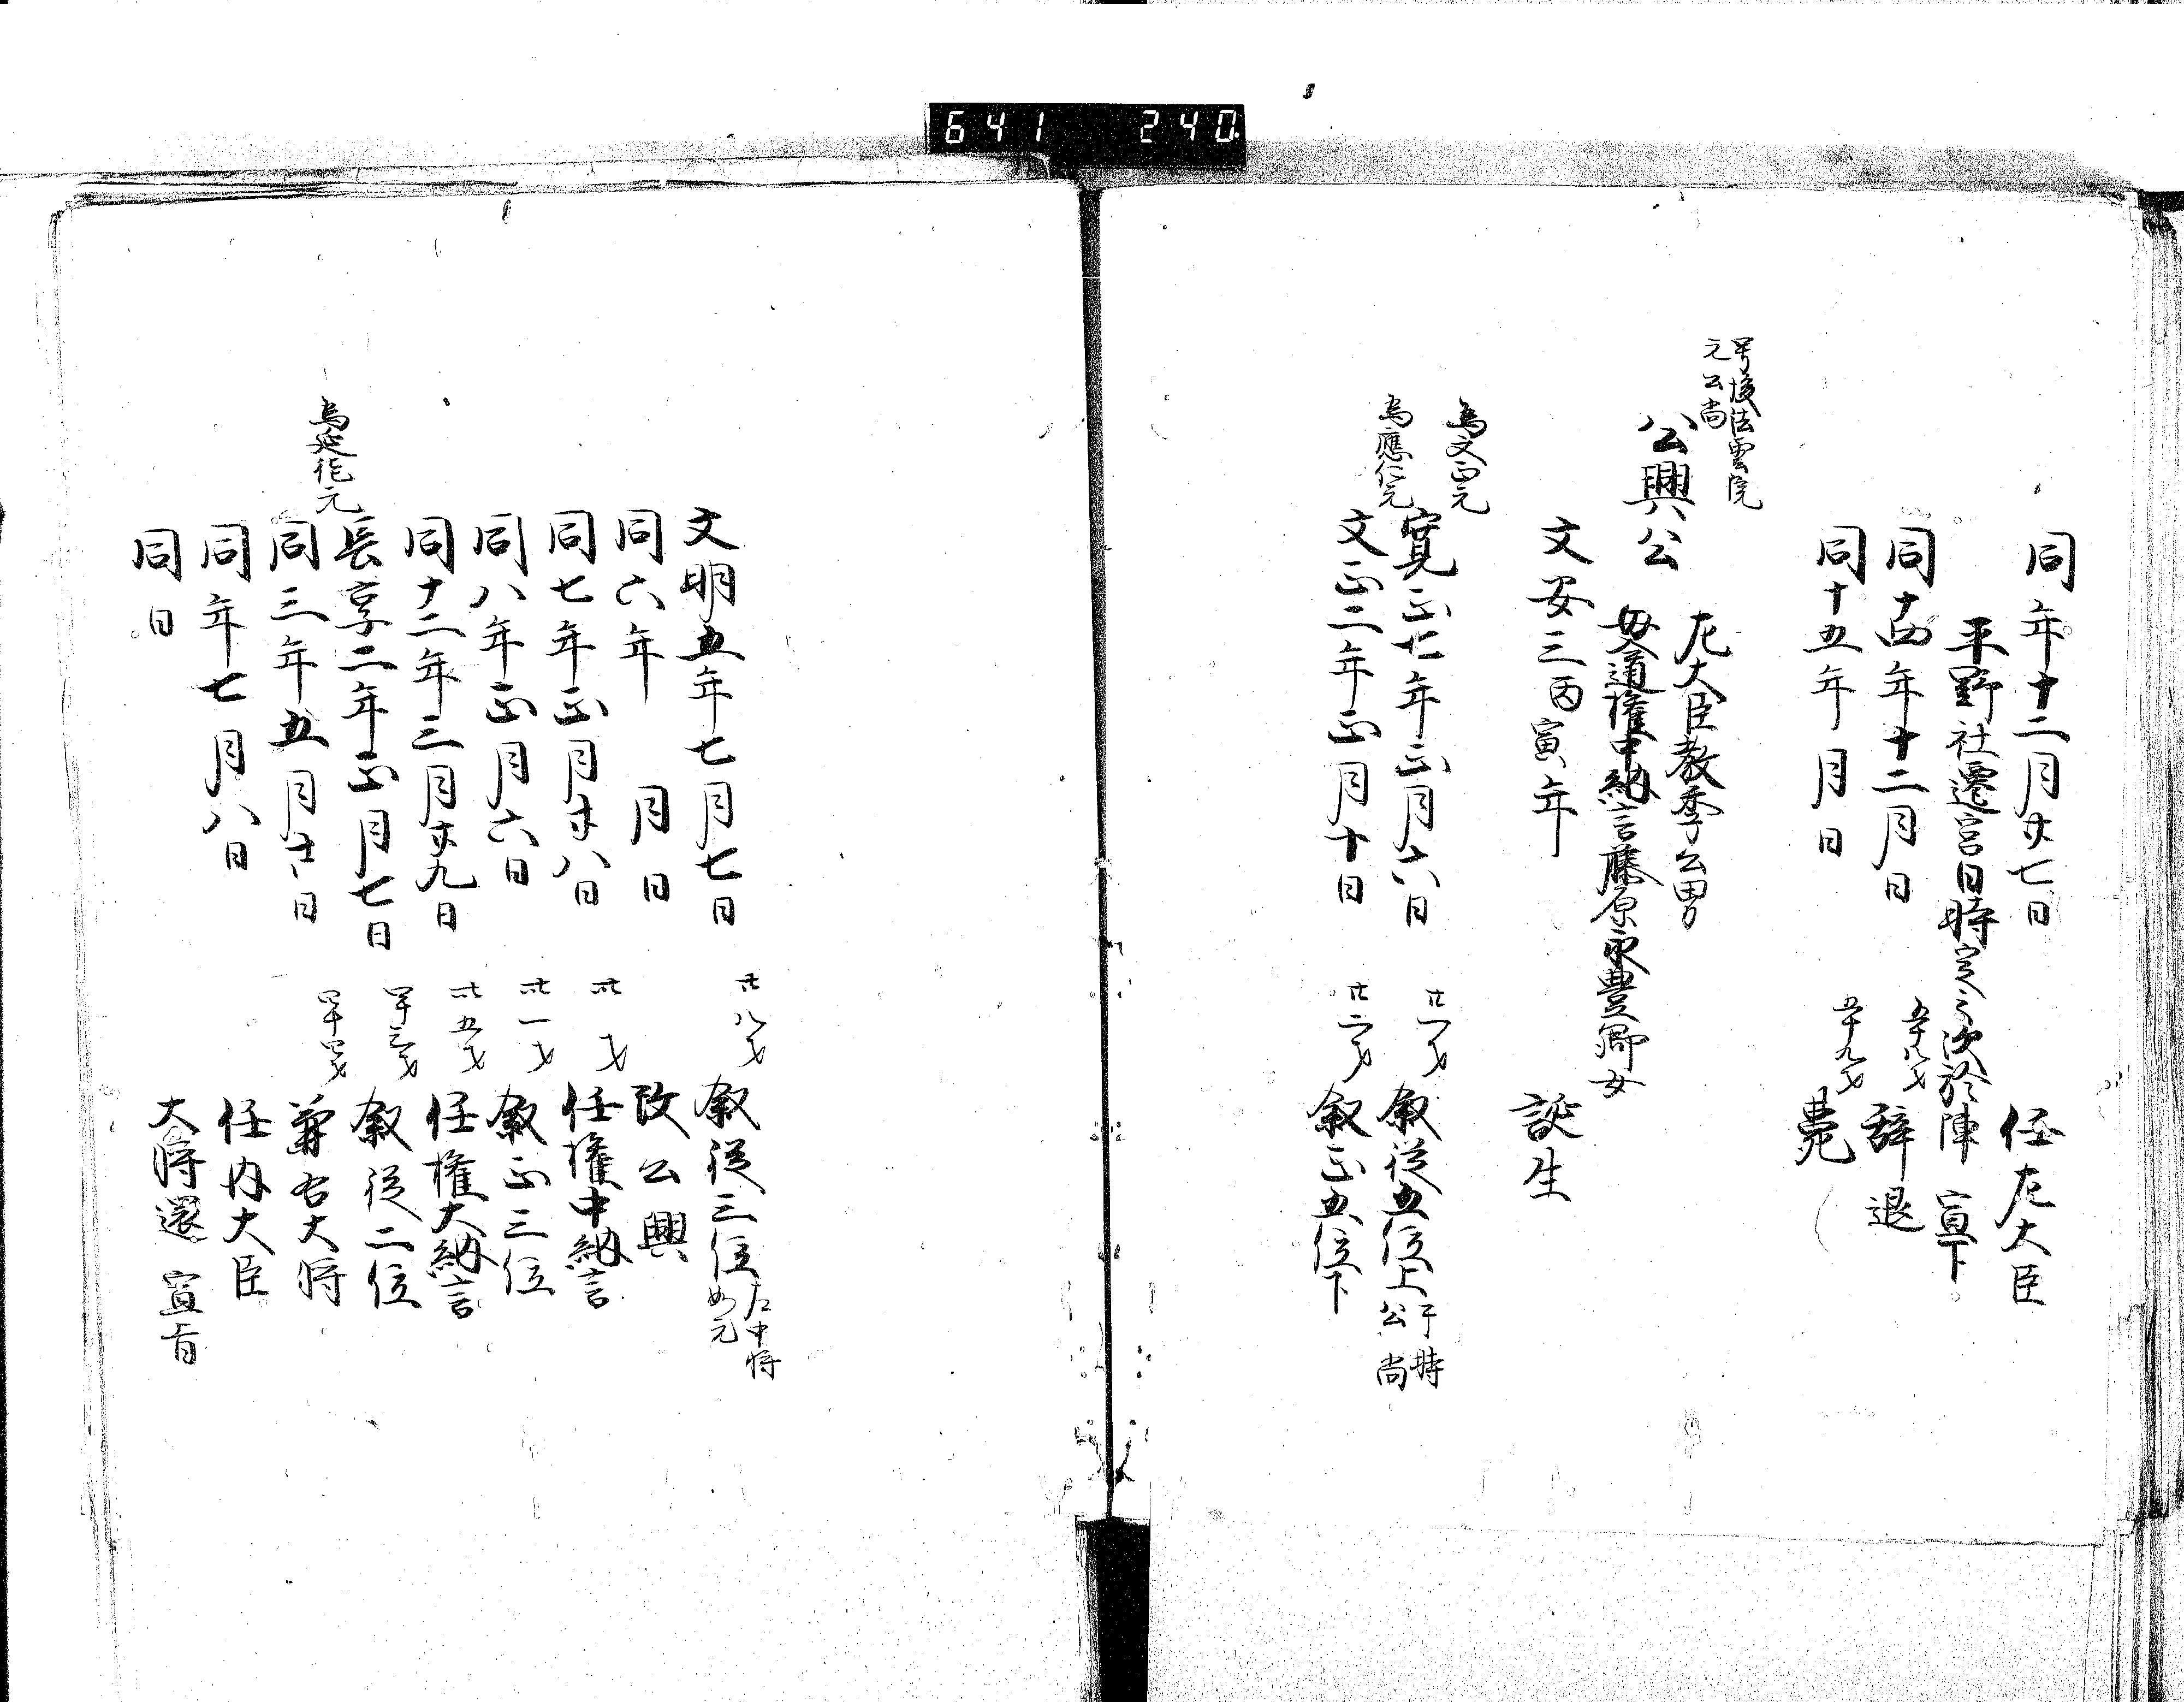 641 240
同年十二月廿七日 任左大臣
平野社遷宮日時定之次於陣 宣下
同十四年十二月日 五十八才 辞退
同十五年月日 五十九才 薨
号後法雲院
元公尚
公興公 左大臣教季公男
母入道権中納言藤原永豊卿女
文安三丙寅年 誕生
為文正元
寛正七年正月六日 廿一才 叙従五位上 于時
公尚
為應仁元
文正二年正月十日 廿二才 叙正五位下
文明五年七月七日 廿八才 叙従三位 左中将
如元
同六年 月 日 改公興
同七年正月廿八日 卅才 任権中納言
同八年正月六日 卅一才 叙正三位
同十二年三月廿九日 卅五才 任権大納言
長享二年正月七日 四十三才 叙従二位
為延徳元
同三年五月十一日 四十四才 兼右大将
同年七月八日 任内大臣
同日 大将還宣旨